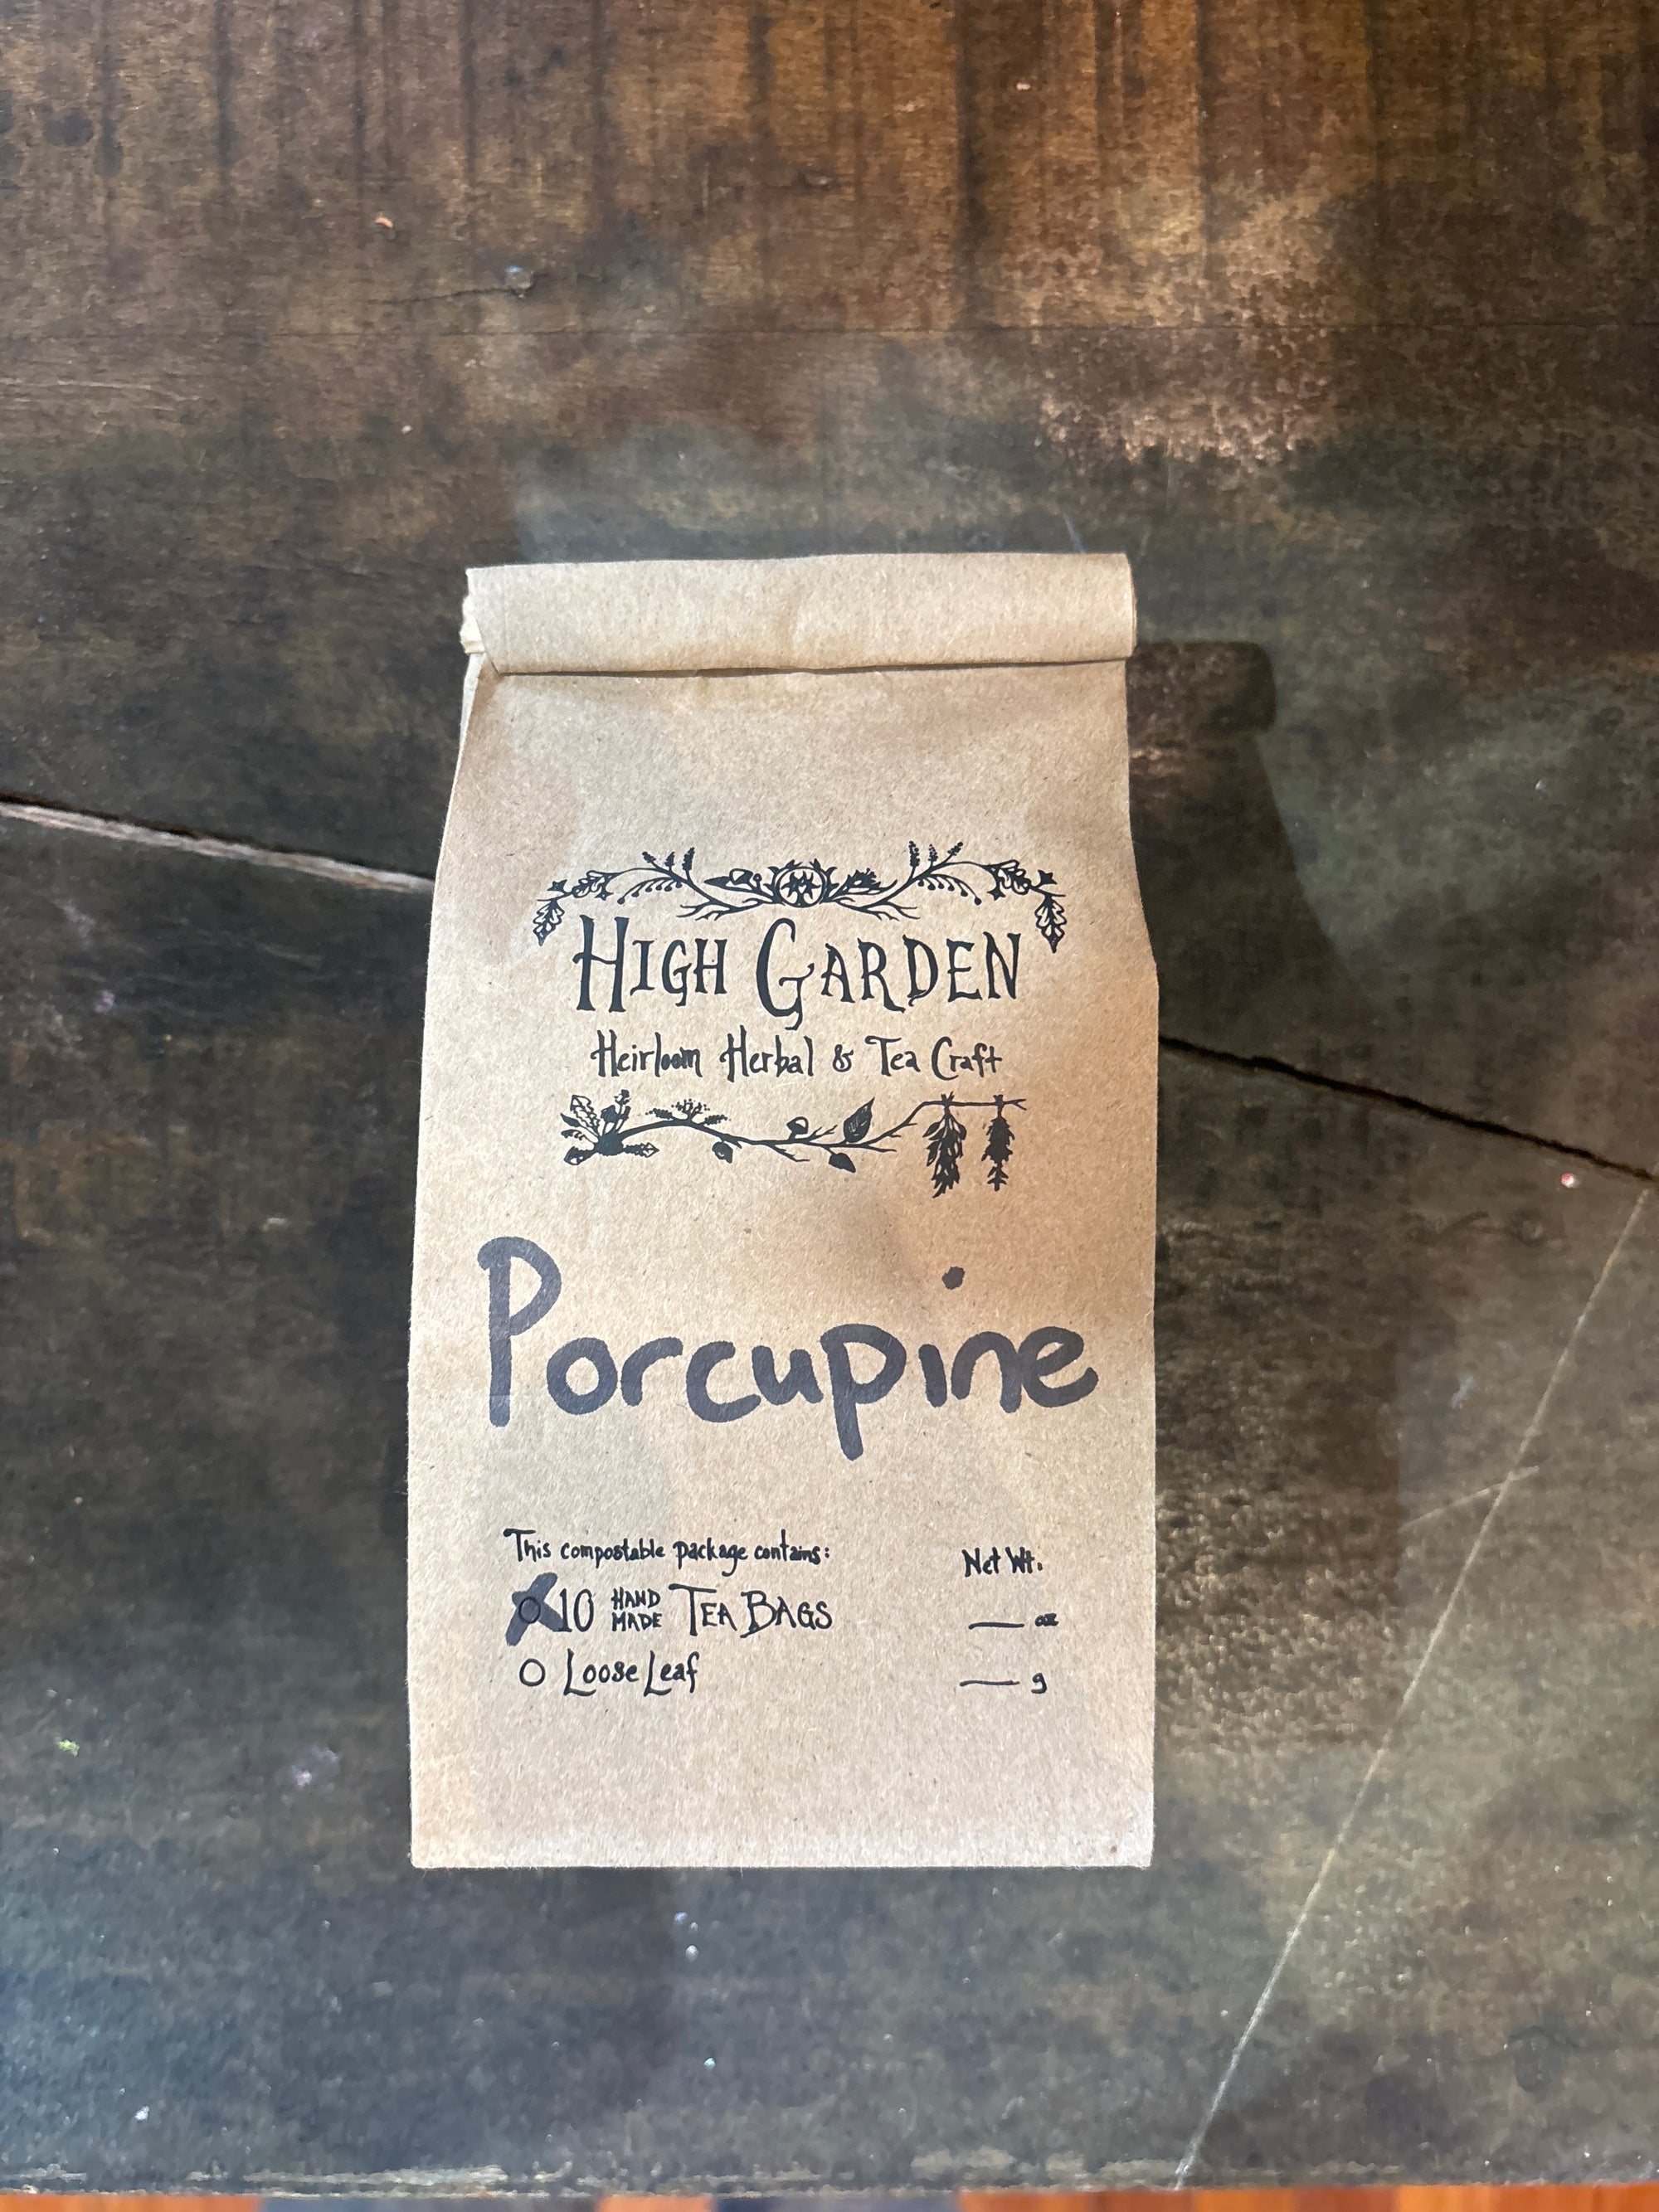 HIGH GARDEN
Heirloom Herbal & Tea Craft
Porcupine
This compostable package contains:
10 HAND MADE TEA BAGS
Loose Leaf
Net Wt.
___ oz
___ g